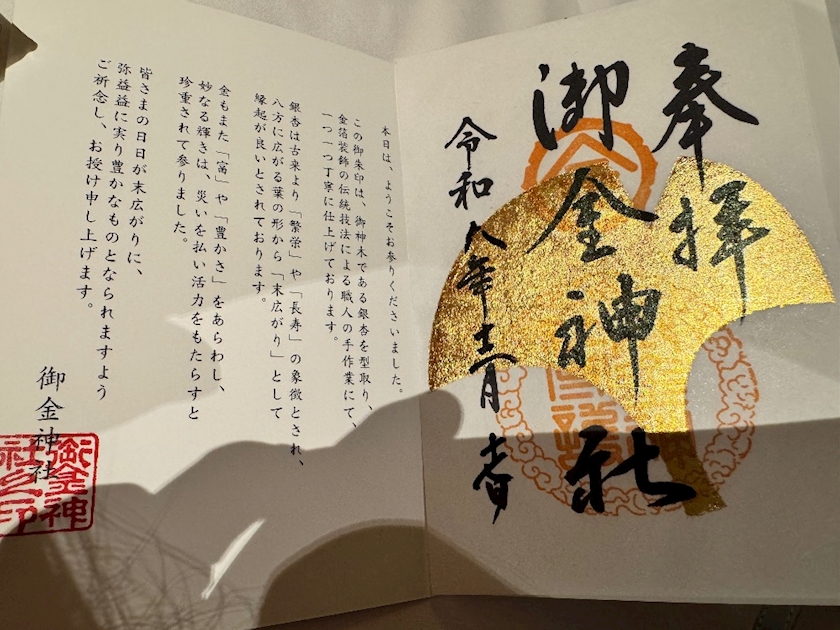 奉拝
御金神社
令和八年
本日は、ようこそお参りくださいました。
この御朱印は、御神木である銀杏を型取り、
金箔装飾の伝統技法による職人の手作業にて、
一つ一つ丁寧に仕上げております。
銀杏は古来より「繁栄」や「長寿」の象徴とされ、
八方に広がる葉の形から「末広がり」として
縁起が良いとされております。
金もまた「富」や「豊かさ」をあらわし、
妙なる輝きは、災いを払い活力をもたらすと
珍重されて参りました。
皆さまの日日が末広がりに、
弥益益に実り豊かなものとなられますよう
ご祈念し、お授け申し上げます。
御金神社
御金神
社之印